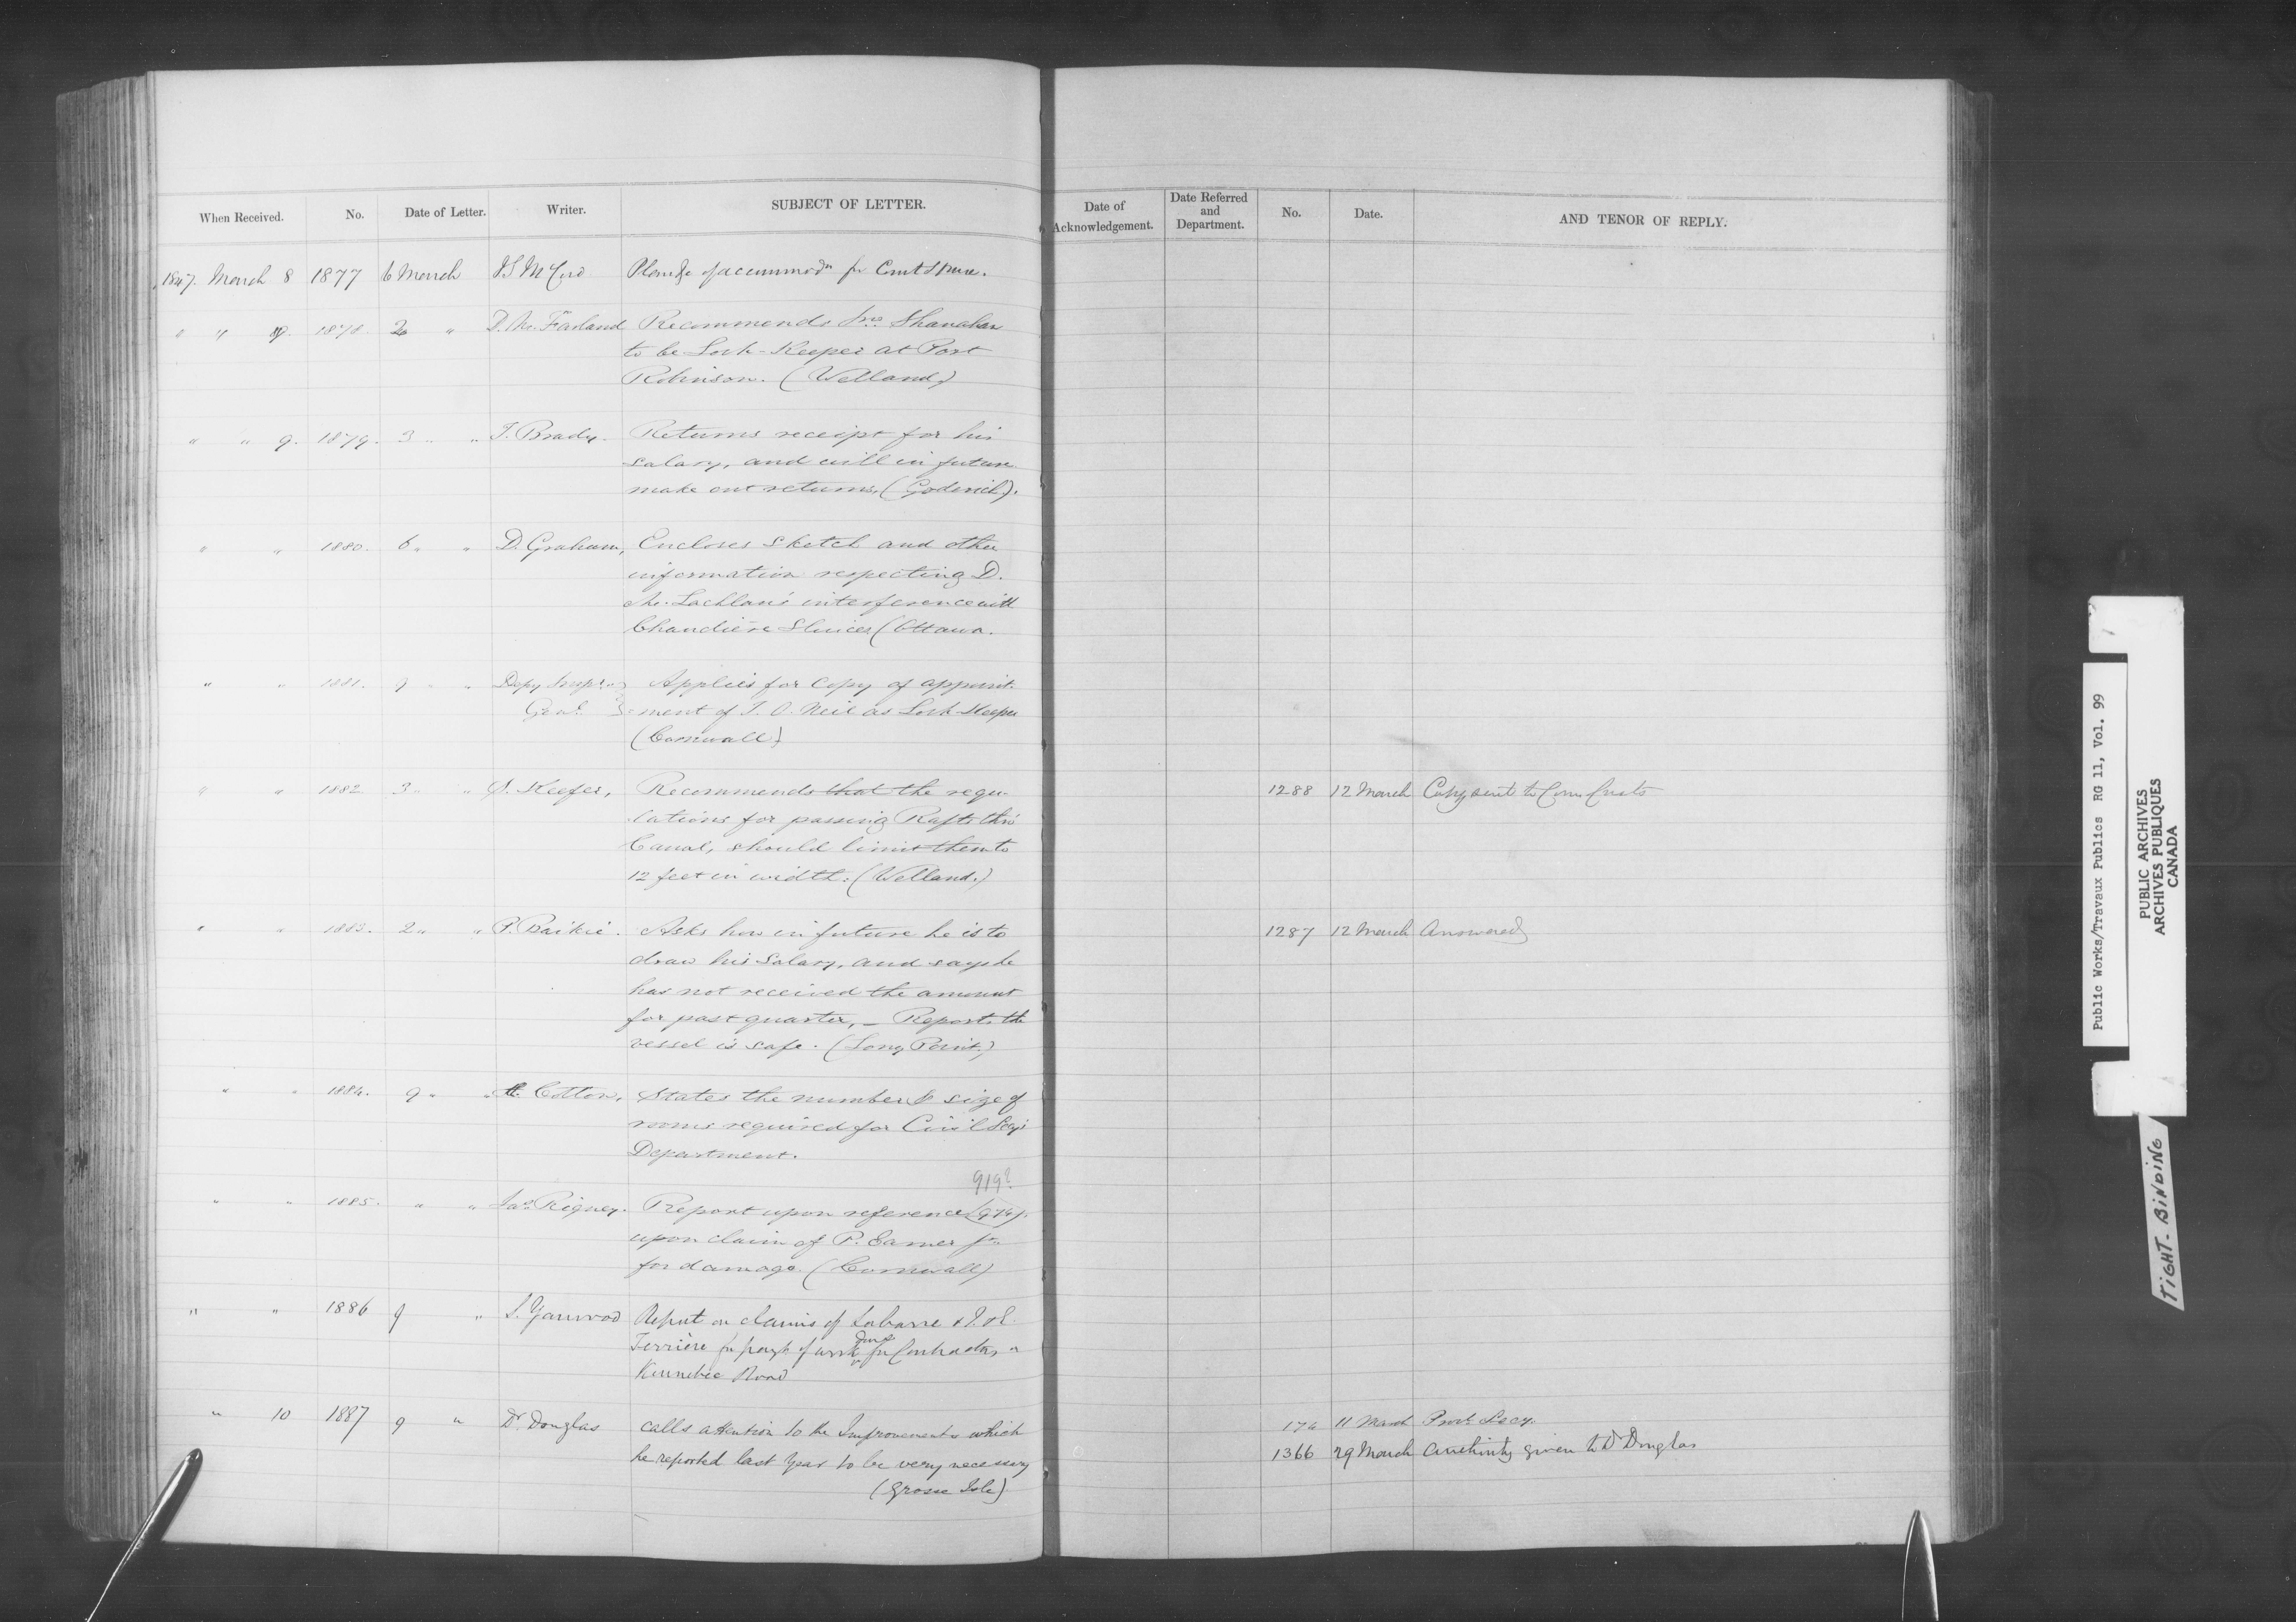 When Received. No. Date of Letter. Writer. SUBJECT OF LETTER.
Date of Acknowledgement. Date Referred and Department. No. Date. AND TENOR OF REPLY.
1847. March 8 1877 6 March J S McCord for Court House.
" " 9. 1878. 2 " D. McFarland Recommends Jno Shanahan
to be Lock-Keeper at Port
Robinson. (Welland)
" " 9. 1879. 3 " " T. Brady. Returns receipt for his
salary, and will in future
make out returns. (Goderich).
" " 1880. 6 " " D. Graham, Encloses sketch and other
information respecting D.
Mc.Lachlan's interference with
Chaudière Sluices (Ottawa.
" " 1881. 9 " " Depy Inspr Applies for Copy of appoint-
Genl. ment of J. O. Neil as Lock-Keeper
(Cornwall)
" " 1882 3 " " S. Keefer, Recommends that the regu- 1288 12 March Copy sent to Com Custs
lations for passing Rafts thro'
Canal, should limit them to
12 feet in width. (Welland.)
" " 1883. 2 " " P. Baikie. Asks how in future he is to 1287 12 March Answered
draw his Salary, and says he
has not received the amount
for past quarter, _ Reports the
vessel is safe. (Long Point.)
" " 1884. 9 " " Cotton, States the number & size of
rooms required for Civil Secy's
Department.
919?
" " 1885. " " Jas. Rigney. Report upon reference (974).
upon claim of P. Eamer Jr.
for damage. (Cornwall)
" " 1886 9 " S. Yarwood Report on claims of Labarre & J. & E.
Ferrière for payt of work done for Contractors on
Kennebec Road
" 10 1887 9 " Dr. Douglas calls attention to the Improvements which 174 11 March Prov'l Secy.
he reported last year to be very necessary 1366 29 March Authority given to Dr Douglas
(Grosse Isle)
Public Works/Travaux Publics RG 11, Vol. 99
PUBLIC ARCHIVES
ARCHIVES PUBLIQUES
CANADA
TIGHT-BINDING